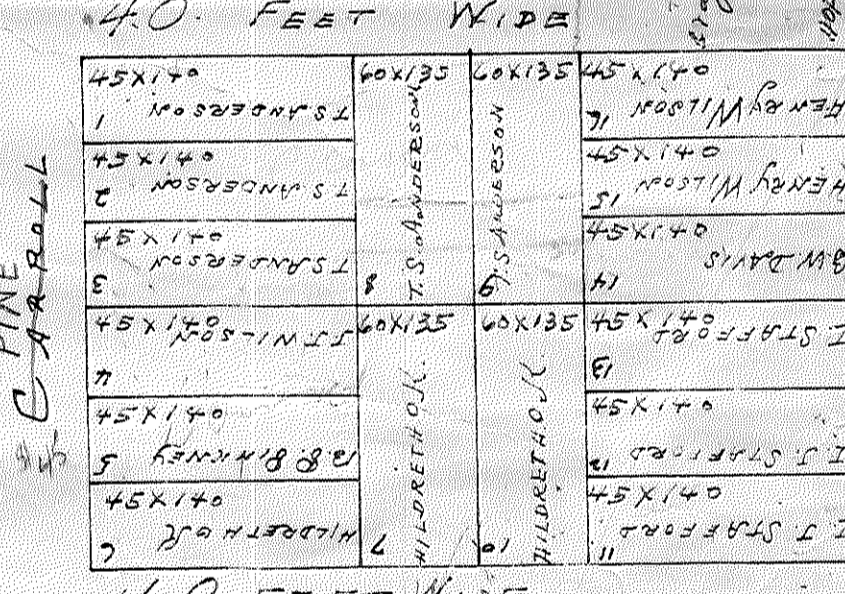 40 FEET WIDE
PINE
CARROLL
45X140
1 T S ANDERSON
45X140
2 T S ANDERSON
45X140
3 T S ANDERSON
45X140
J J WILSON
4
45X140
5 B. B. BINKNEY
45X140
6 HILDRETH OK
60X135
T. S. ANDERSON
8
60X135
T. S. ANDERSON
9
60X135
HILDRETH OK.
7
60X135
HILDRETH OK
10
45X140
16 HENRY WILSON
45X140
15 HENRY WILSON
45X140
B.W. DAVIS
14
45X140
I. STAFFORD
13
45X140
12 I. J. STAFFORD
45X140
11 I. J. STAFFORD
40 FEET WIDE